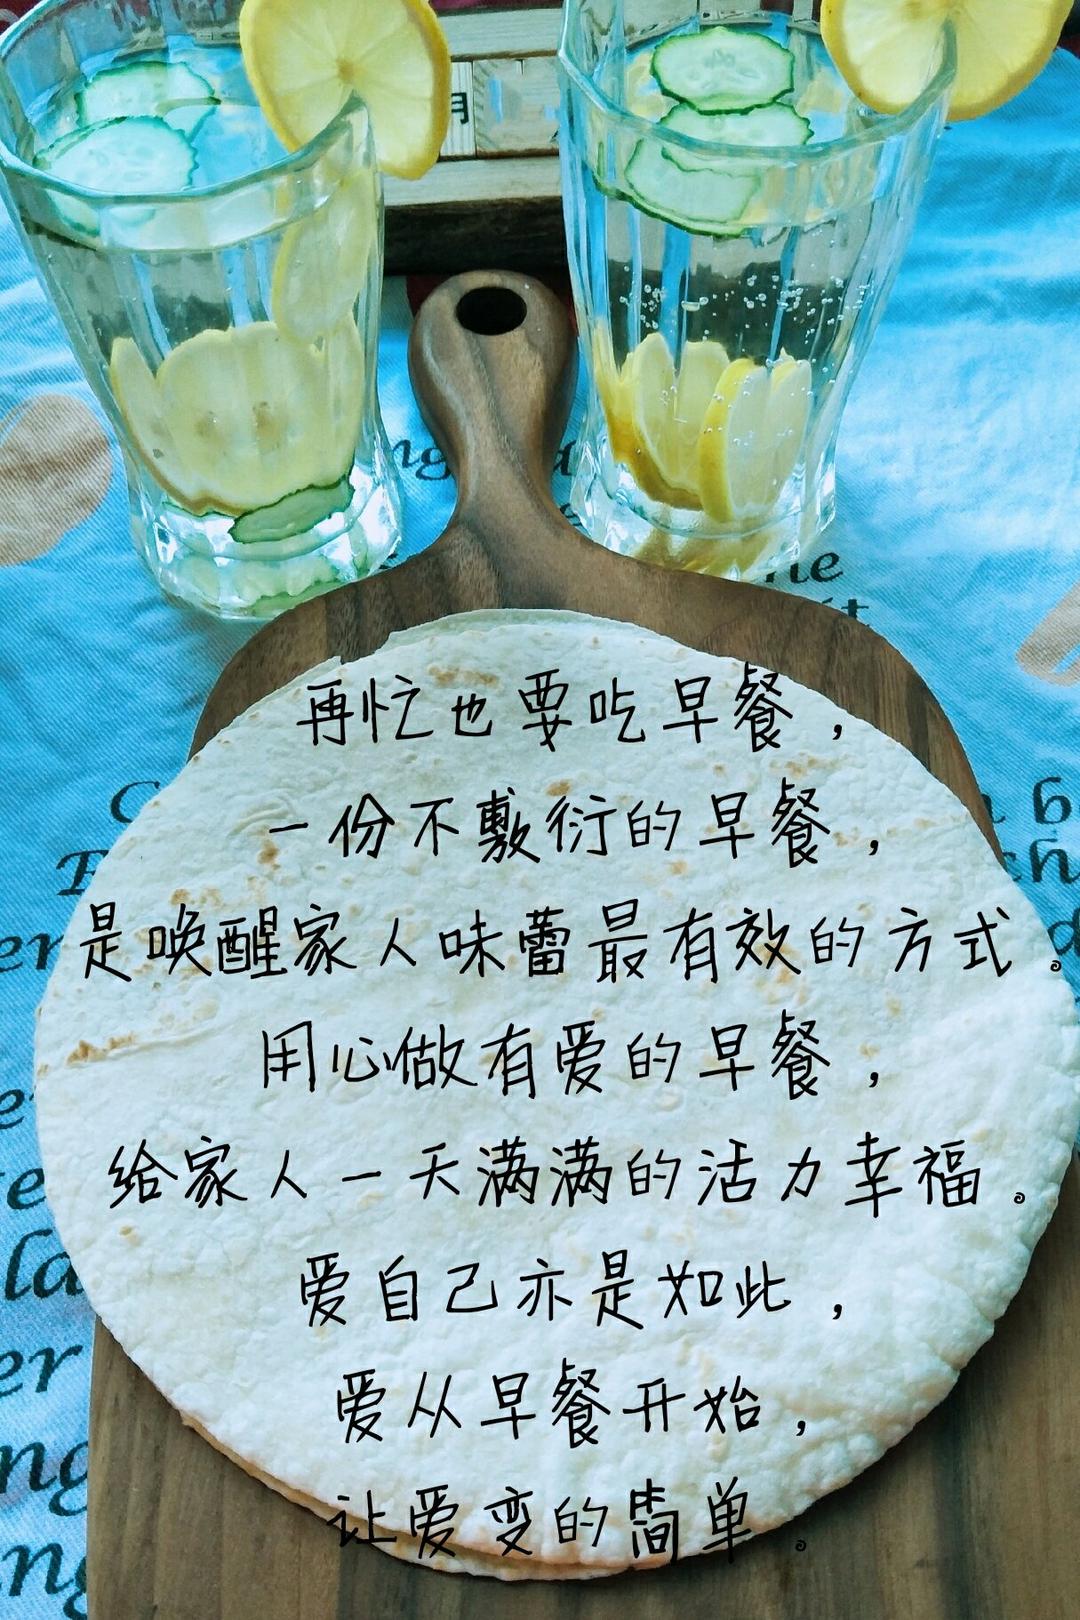 月
再忙也要吃早餐，
一份不敷衍的早餐，
是唤醒家人味蕾最有效的方式。
用心做有爱的早餐，
给家人一天满满的活力幸福。
爱自己亦是如此，
爱从早餐开始，
让爱变的简单。